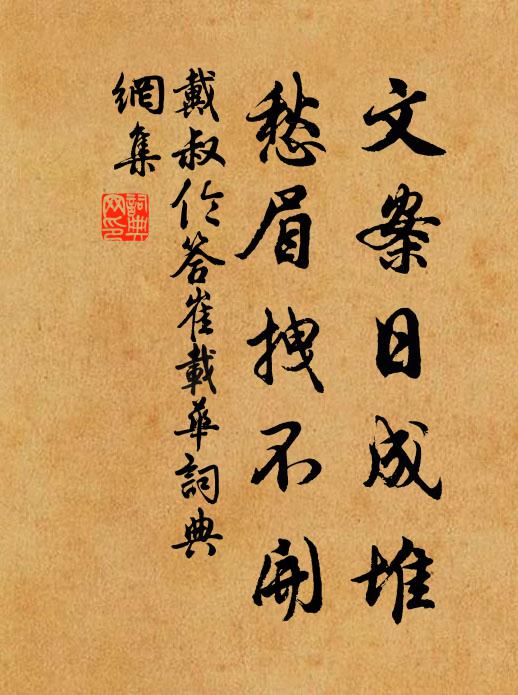 文案日成堆
愁眉拽不開
戴叔伦答崔載華詞典
網集
詞典网印